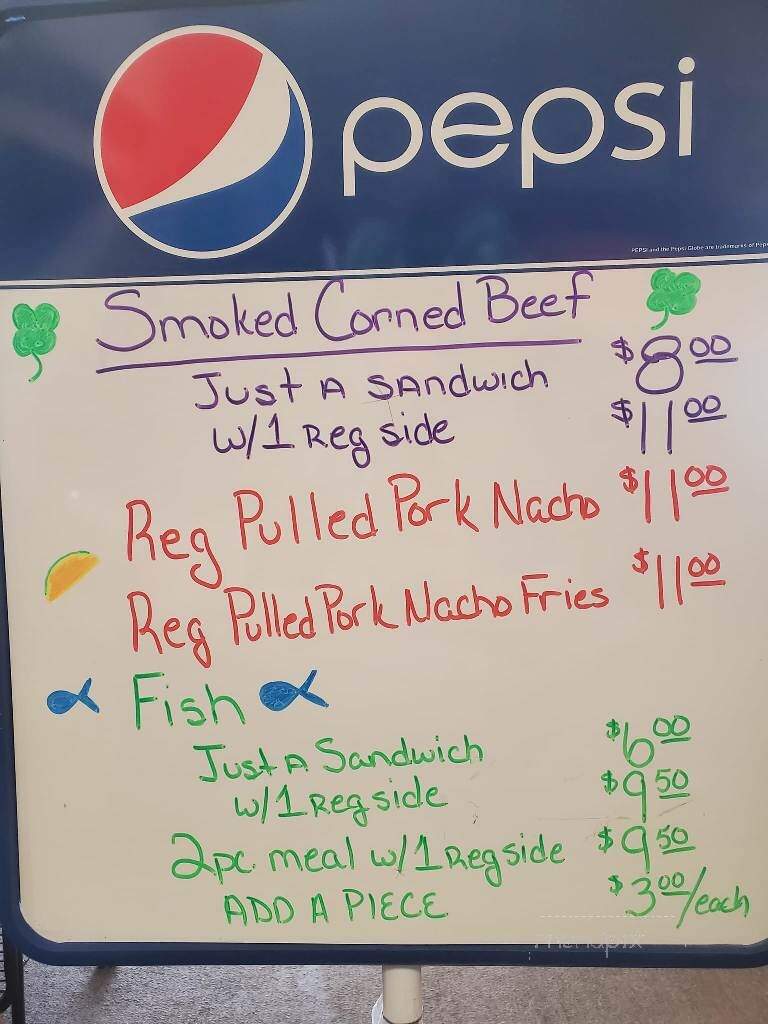 pepsi
PEPSI and the Pepsi Globe are trademarks of Peps
Smoked Corned Beef
Just A SAndwich $8.00
w/1 Reg side $11.00
Reg Pulled Pork Nacho $11.00
Reg Pulled Pork Nacho Fries $11.00
Fish
Just A Sandwich $6.00
w/1 Reg side $9.50
2pc meal w/1 Reg side $9.50
ADD A PIECE $3.00/each
menupix